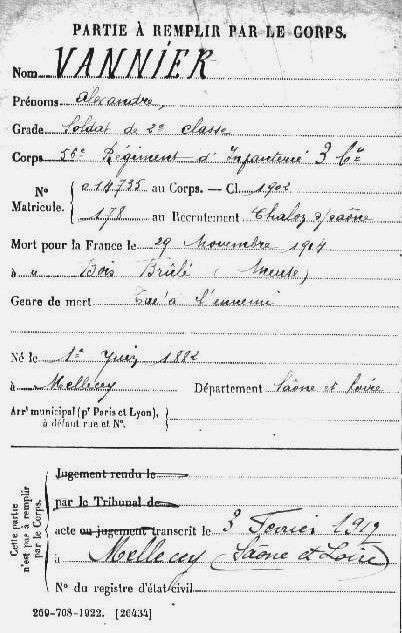 PARTIE À REMPLIR PAR LE CORPS.
Nom VANNIER
Prénoms Alexandre,
Grade Soldat de 2e classe
Corps 56e Régiment d'Infanterie 3 Cie
No Matricule. 014735 au Corps. — Cl. 1902
178 au Recrutement Chalon s/Saône
Mort pour la France le 29 Novembre 1914
à " Bois Brûlé (Meuse)
Genre de mort Tué à l'ennemi
Né le 1er Juin 1882
à Mellecey Département Saône et Loire
Arrt municipal (pr Paris et Lyon), à défaut rue et No.
Cette partie n'est pas à remplir par le Corps.
Jugement rendu le
par le Tribunal de
acte ou jugement transcrit le 3 Février 1919
à Mellecey (Saône et Loire)
No du registre d'état civil
269-708-1922. [26434]